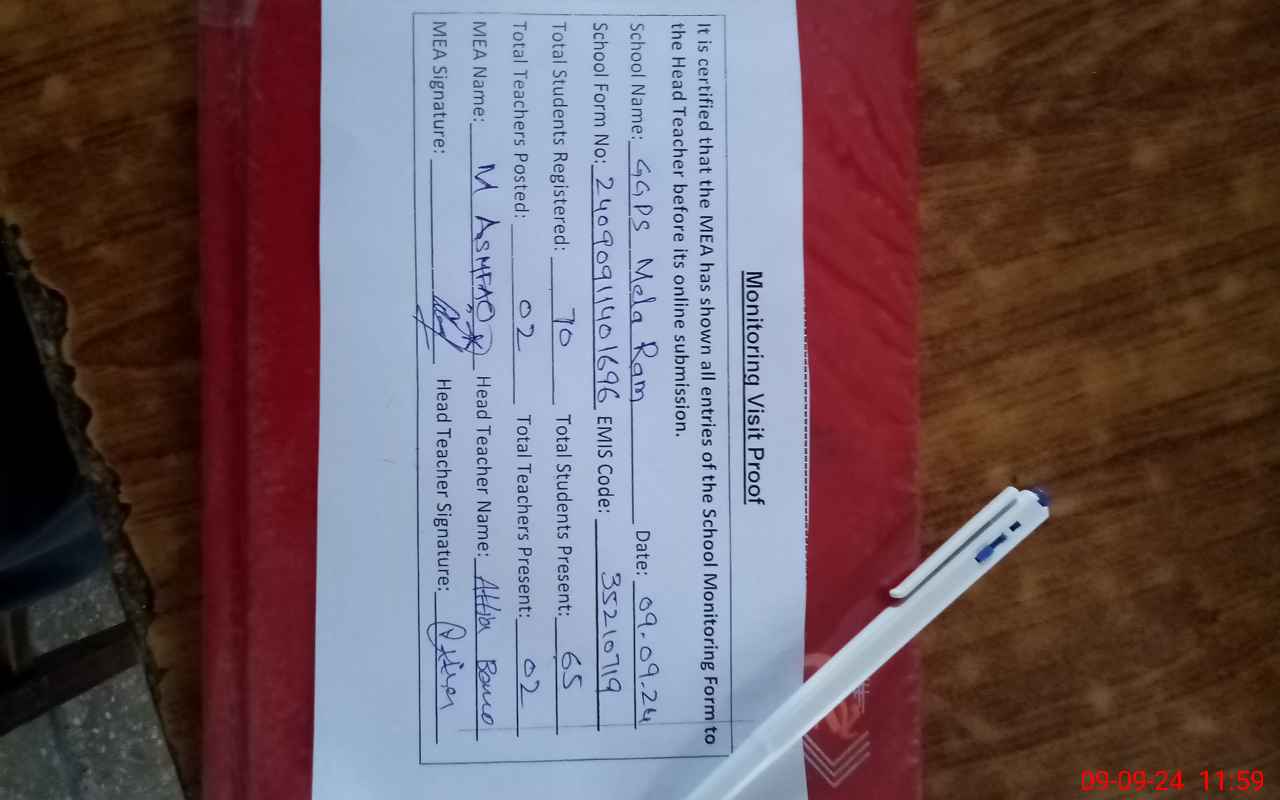 Monitoring Visit Proof
It is certified that the MEA has shown all entries of the School Monitoring Form to
the Head Teacher before its online submission.
School Name: GGPS Mela Ram Date: 09.09.24
School Form No: 24090911401696 EMIS Code: 35210719
Total Students Registered: 70 Total Students Present: 65
Total Teachers Posted: 02 Total Teachers Present: 02
MEA Name: M Head Teacher Name: Attiba Bano
MEA Signature: Head Teacher Signature:
09-09-24 11:59